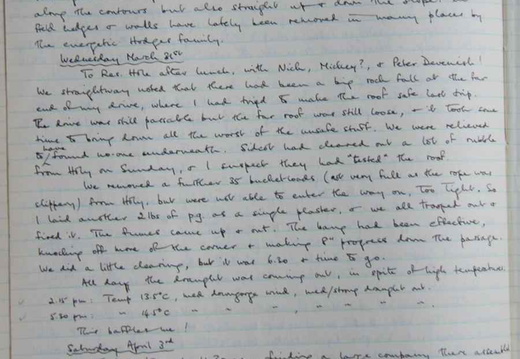 along the contours, but also straight up & down the slope.
field hedges & walls have lately been removed in many places by
the energetic Hodges family.
Wednesday March 31st
To Res. Hole after lunch, with Nich, Mickey?, & Peter Devenish!
We straightway noted that there had been a big rock fall at the far
end of my drive, where I had tried to make the roof safe last trip.
The drive was still passable but the far roof was still loose, & it took some
time to bring down all the worst of the unsafe stuff. We were relieved
to have found no-one underneath. Sidcot had cleared out a lot of rubble
from Holy on Sunday, & I suspect they had "tested" the roof
We removed a further 35 bucketloads (not very full as the rope was
slippery) from Holy, but were not able to enter the way on, Too Tight. So
I laid another 2 lbs of p.g. as a single plaster, & we all trooped out &
fired it. The fumes came up & out. The bang had been effective,
knocking off more of the corner & making 8" progress down the passage.
We did a little clearing, but it was 6.30 & time to go.
All day the draught was coming out, in spite of high temperatures
2.15 pm: Temp 13.5°C, med downgorge wind, med/strong draught out.
5.30 pm: " 14.5°C " " " " "
This baffles me!
Saturday April 3rd
finding a large company there assembled